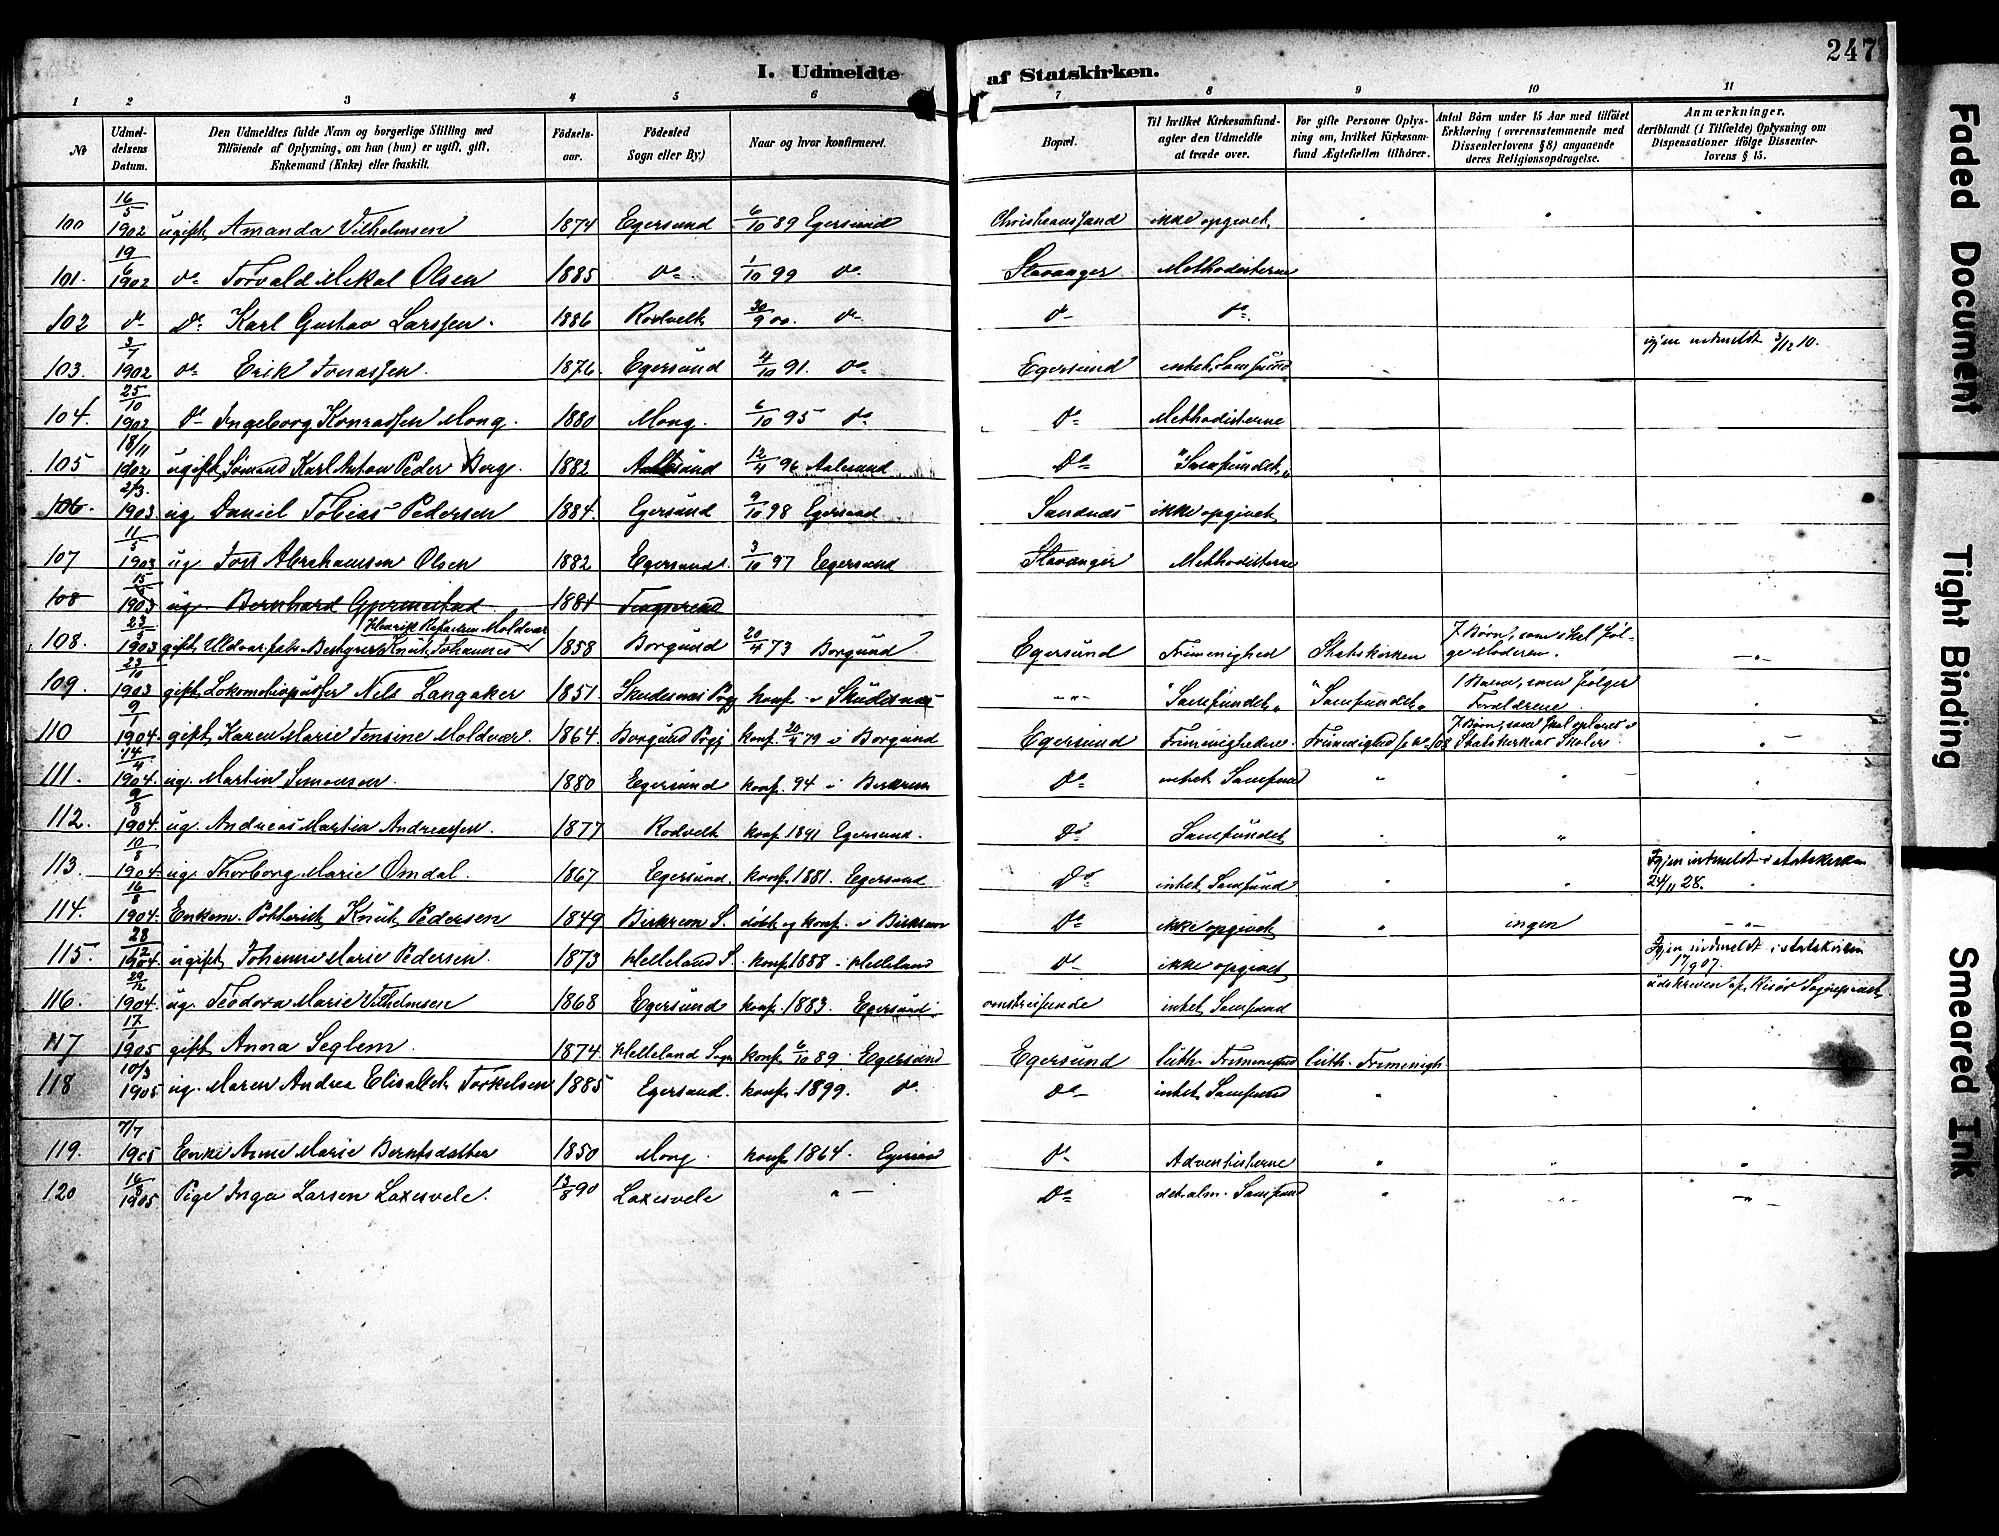 247
I. Udmeldte af Statskirken.
1 2 3 4 5 6 7 8 9 10 11
No
Udmel-
delsens
Datum.
Den Udmeldtes fulde Navn og borgerlige Stilling med
Tilföiende af Oplysning, om han (hun) er ugift, gift,
Enkemand (Enke) eller fraskilt.
Födsels-
aar.
Födested
Sogn eller By.)
Naar og hvor konfirmeret.
Bopæl.
Til hvilket Kirkesamfund-
agter den Udmeldte
at træde over.
For gifte Personer Oplys-
ning om, hvilket Kirkesam-
fund Ægtefællen tilhörer.
Antal Börn under 15 Aar med tilföiet
Erklæring (overensstemmende med
Dissenterlovens § 8) angaaende
deres Religionsopdragelse.
Anmærkninger,
deriblandt (i Tilfælde) Oplysning om
Dispensationer ifölge Dissenter-
lovens § 15.
100 16/5 1902 ugift Amanda Vilhelmsen 1874 Egersund 6/10 89 Egersund Christianssand ikke opgivet " " "
101. 19/6 1902 do Torvald Mekal Olsen 1885 do 1/10 99 do Stavanger Methodisterne
102 do Do Karl Gustav Larssen. 1886 Rodvelt 30/9 00. do do do
103. 3/7 1902 do Erik Jonassen. 1876 Egersund 4/10 91. do Egersund intet Samfund igjen indmeldt 3/12 10.
104. 25/10 1902 do Ingeborg Konradsen Mong. 1880 Mong. 6/10 95 do do Methodisterne
105 18/11 1902 ugift Sömand Karl Anton Peder Berge. 1882 Aalesund 12/4 96 Aalesund Do "Samfundet"
106. 2/3. 1903. ug. Daniel Tobias Pedersen 1884. Egersund 9/10 98 Egersund Sandnæs ikke opgivet
107 11/5 1903 ug. Abrahamsen Olsen 1882 Egersund. 3/10 97 Egersund Stavanger Methodisterne
108 15/5 1903 ug. Bernhard 1881
108. 23/5 1903 gift Henrik Moldvær Knut Johannes 1858 Borgund 20/4 73 Borgund. Egersund Frimenighed Statskirken 7 Börn, som skal föl-
ge Moderen. — " —
109. 23/10 1903 gift Lokomotivpudser Nels Langaker 1851 Skudesnæs Pgj konf. i Skudesnæs — " — "Samfundet" "Samfundet" 1 Barn, som fölger
Forældrene "
110 9/1 1904. gift Karen Marie Jensine Moldvær. 1864. Borgund Pgj. konf. 20/4 79 i Borgund Egersund Frimenigheden. Frimenighed se No 108 7 Börn, som skal oplæres i
Statskirkens Skoler. "
111. 14/4 1904. ug. Martin Simonsen. 1880 Egersund konf. 94 i Birkrem do intet Samfund " " "
112. 9/8 1904. ug. Andreas Martin Andreassen. 1877 Rodvelt konf. 1891 Egersund. Do Samfundet " " "
113. 10/8 1904. ug. Thorborg Marie Omdal. 1867 Egersund. konf. 1881. Egersund Do intet Samfund " " Igjen indmeldt i statskirken
24/11 28. "
114. 16/8 1904. Enkem. Knut Pedersen 1849 Birkrem S. döbt og konf. i Birkrem Do ikke opgivet " ingen — " —
115. 28/12 1904. ugift Johanne Marie Pedersen. 1873 Helleland S. konf. 1888 i Helleland do ikke opgivet Igjen indmeldt i statskirken
17/9 07.
116. 29/12 1904. ug. Teodora Marie Vilhelmsen 1868 Egersund konf. 1883. Egersund. omstreifende intet Samfund udskreven af Risör
117 17/1 1905 gift Anna Seglem. 1874 Helleland Sogn konf. 6/10 89. Egersund Egersund luth. Frimenighed luth. Frimenigh
118 10/3 1905 ug. Maren Andrea Elisabet Torkelsen 1885 Egersund. konf. 1899. do. do intet Samfund " " "
119. 7/7 1905 Enke Anne Marie Berntsdatter 1850 Mong. konf. 1864. Egersund do Adventisterne " " "
120 1905 Pige Inga Larsen Laxesvele. 13/8 90 Laxesvele " — Do det alm. Samfund " " — " —
Faded Document
Tight Binding
Smeared Ink